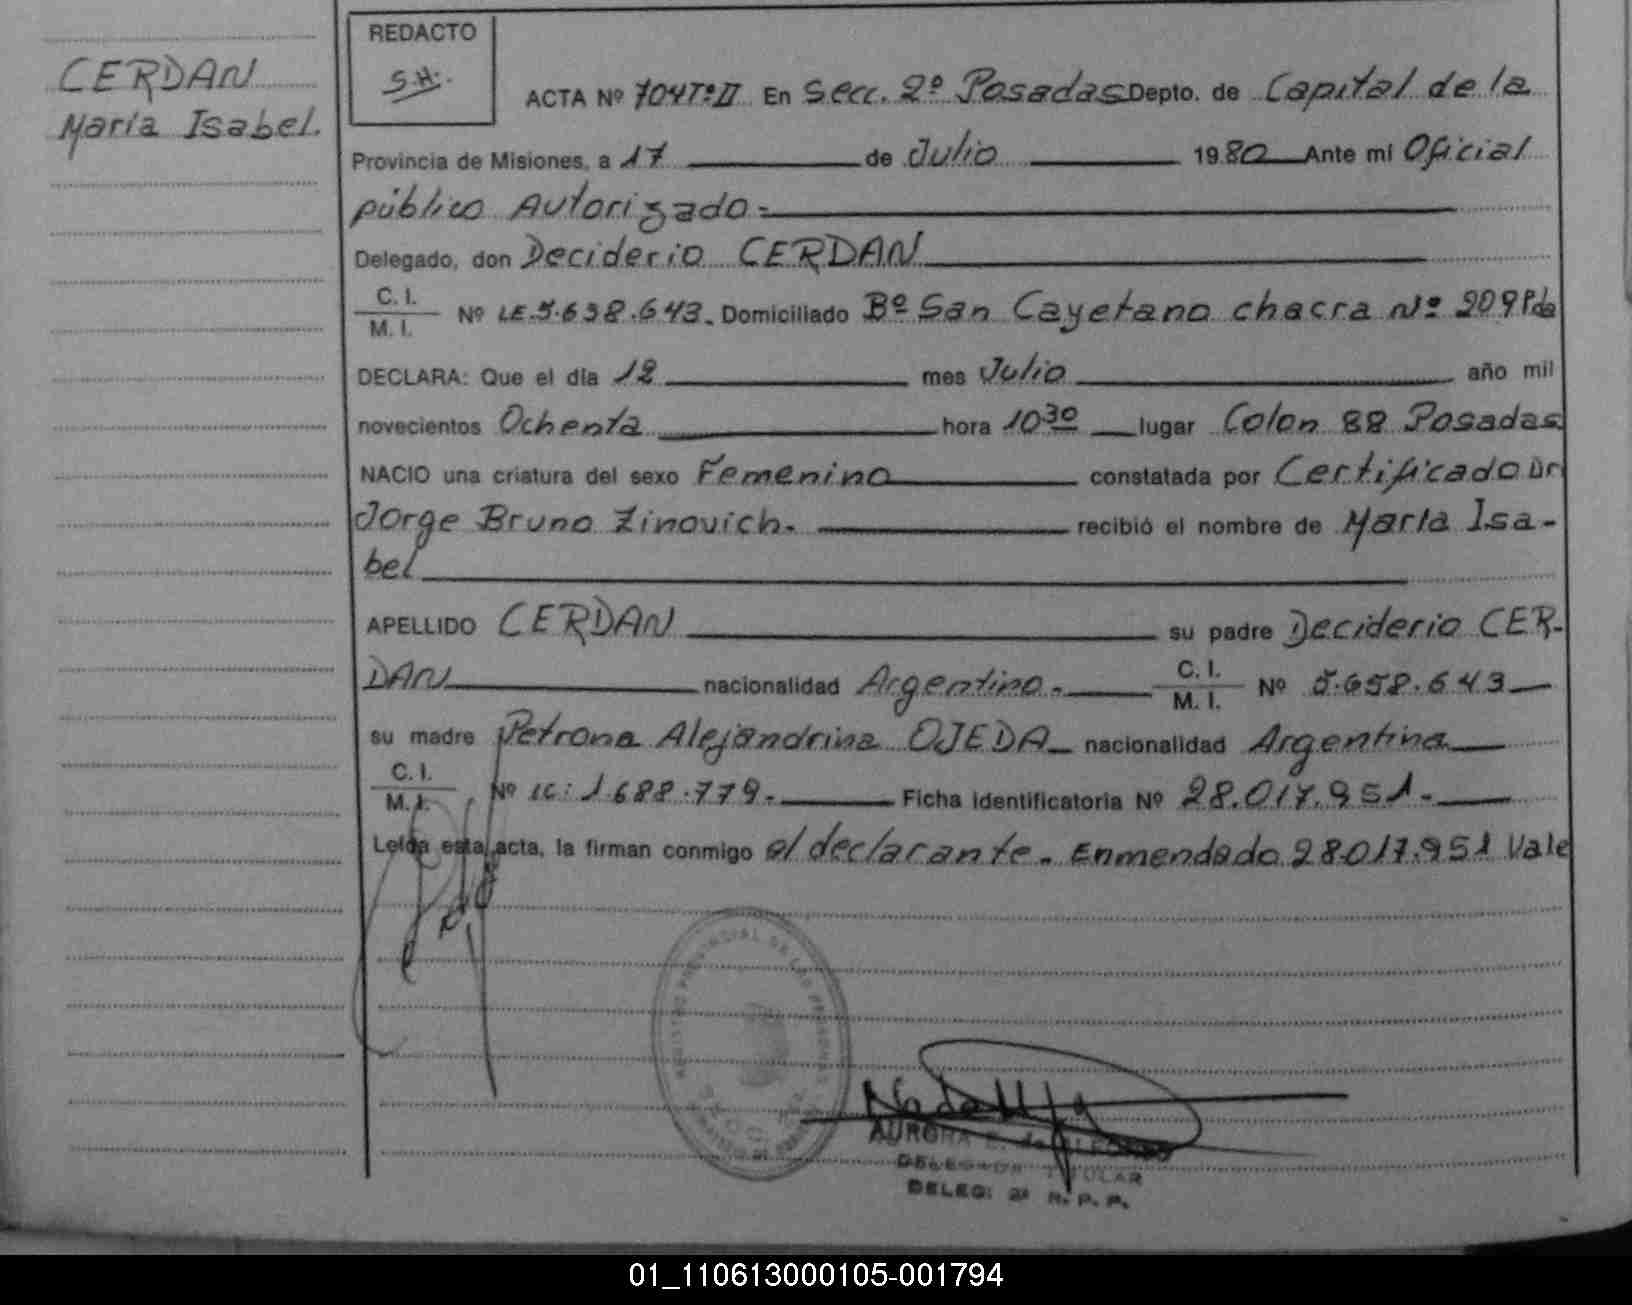 CERDAN
Maria Isabel.
REDACTO
S.H.
ACTA Nº 704TºII En Secc. 2º Posadas Depto. de Capital de la
Provincia de Misiones, a 17 de Julio 1980 Ante mi Oficial
público Autorizado.-
Delegado, don Deciderio CERDAN
C. I.
M. I. Nº LE.5.658.643. Domiciliado Bº San Cayetano chacra Nº 209 Pda
DECLARA: Que el día 12 mes Julio año mil
novecientos Ochenta hora 10 30 lugar Colon 88 Posadas
NACIO una criatura del sexo Femenino constatada por Certificado Dr
Jorge Bruno Zinovich.- recibió el nombre de Maria Isa-
bel
APELLIDO CERDAN su padre Deciderio CER-
DAN nacionalidad Argentino.- C. I.
M. I. Nº 5.658.643
su madre Petrona Alejandrina OJEDA nacionalidad Argentina
C. I.
M. I. Nº LC: 1.688.779.- Ficha identificatoria Nº 28.017.951.-
Leída esta acta, la firman conmigo el declarante. Enmendado 28.017.951 Vale
REGISTRO PROVINCIAL DE LAS PERSONAS
AURORA E. de
DELEGADA TITULAR
DELEG. 2ª R. P. P.
01_110613000105-001794